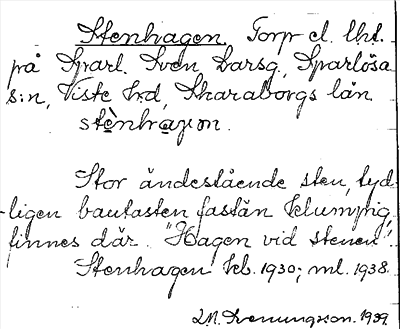 Stenhagen. Torp el. lht.
på Sparl. Sven Larsg, Sparlösa
s:n, Viste hd, Skaraborgs län.
stènhagən.
Stor ändestående sten, tyd-
ligen bautasten fastän klumpig,
finnes där. "Hagen vid stenen".
Stenhagen kb. 1930; ml. 1938.
1939.